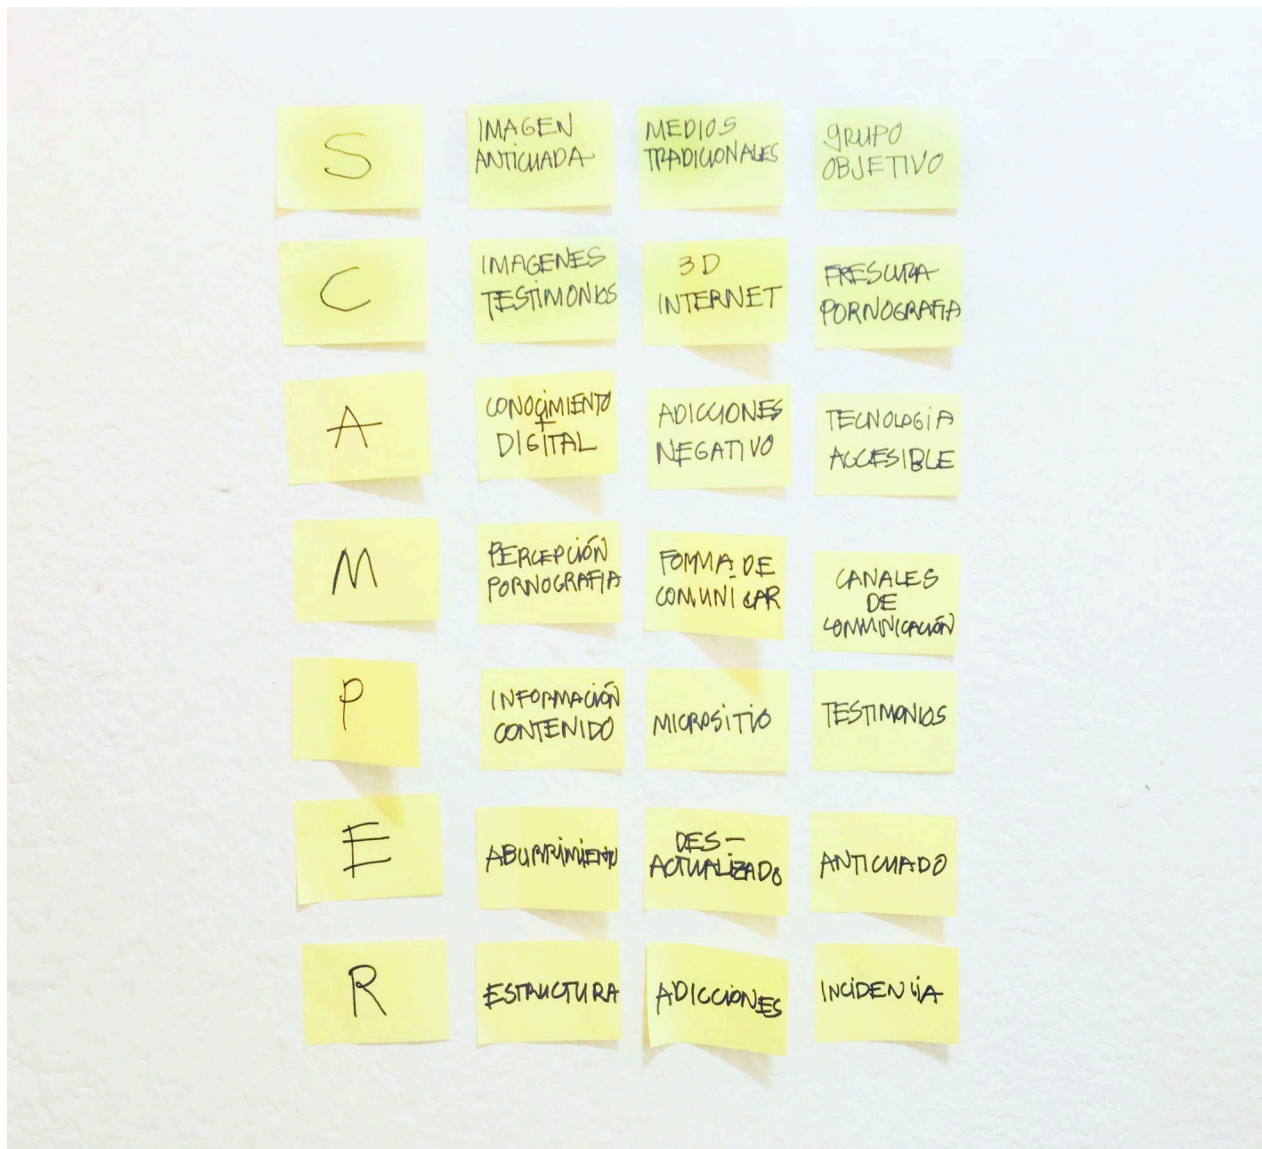 S
IMAGEN
ANTICUADA
MEDIOS
TRADICIONALES
GRUPO
OBJETIVO
C
IMAGENES
TESTIMONIOS
3D
INTERNET
FRESCURA
PORNOGRAFIA
A
CONOCIMIENTO
+
DIGITAL
ADICCIONES
NEGATIVO
TECNOLOGIA
ACCESIBLE
M
PERCEPCIÓN
PORNOGRAFIA
FORMA DE
COMUNICAR
CANALES
DE
COMMUNICACIÓN
P
INFORMACIÓN
CONTENIDO
MICROSITIO
TESTIMONIOS
E
ABURRIMIENTO
DES-
ACTUALIZADO
ANTICUADO
R
ESTRUCTURA
ADICCIONES
INCIDENCIA